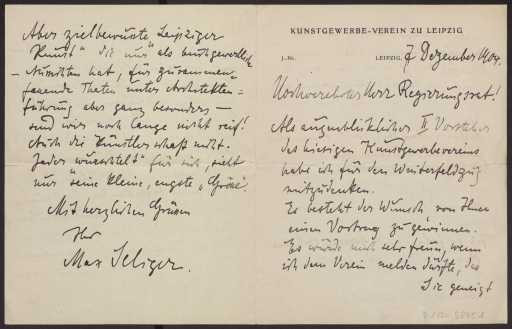 KUNSTGEWERBE-VEREIN ZU LEIPZIG
J.-Nr. LEIPZIG, 7 Dezember 1904.
Hochverehrter Herr Regierungsrat!
Als augenblicklicher II Vorsteher
des hiesigen Kunstgewerbevereins
habe ich für den Winterfeldzug
mitzudenken.
Es besteht der Wunsch von Ihnen
einen Vortrag zu gewinnen.
Es würde mich sehr freun, wenn
ich dem Verein melden dürfte, das
Sie geneigt
Aber zielbewusste Leipziger
"Kunst" die nur als buchgewerbliche
Aussichten hat, für zusammen-
fassende Thaten unter Architekten-
führung aber ganz besonders —
sind wir noch lange nicht reif!
Auch die Künstlerschaft nicht.
Jeder "wurschtelt" für sich, sieht
nur seine kleine, engste "Größe".
Mit herzlichen Grüssen
Ihr
Max Seliger.